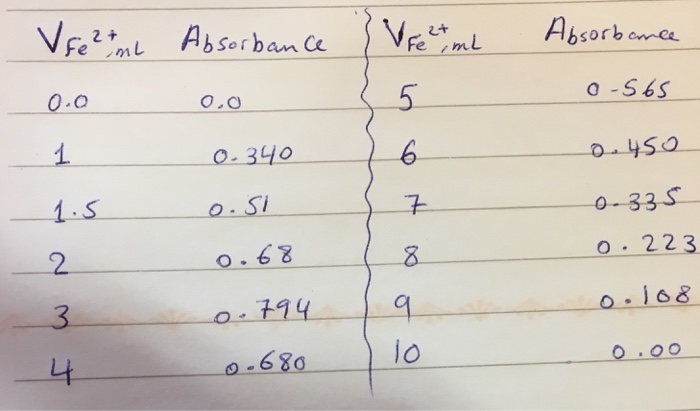 V Fe²⁺, mL Absorbance V Fe²⁺, mL Absorbance
0.0 0.0 5 0-565
1 0.340 6 0.450
1.5 0.51 7 0.335
2 0.68 8 0.223
3 0.794 9 0.108
4 0.680 10 0.00